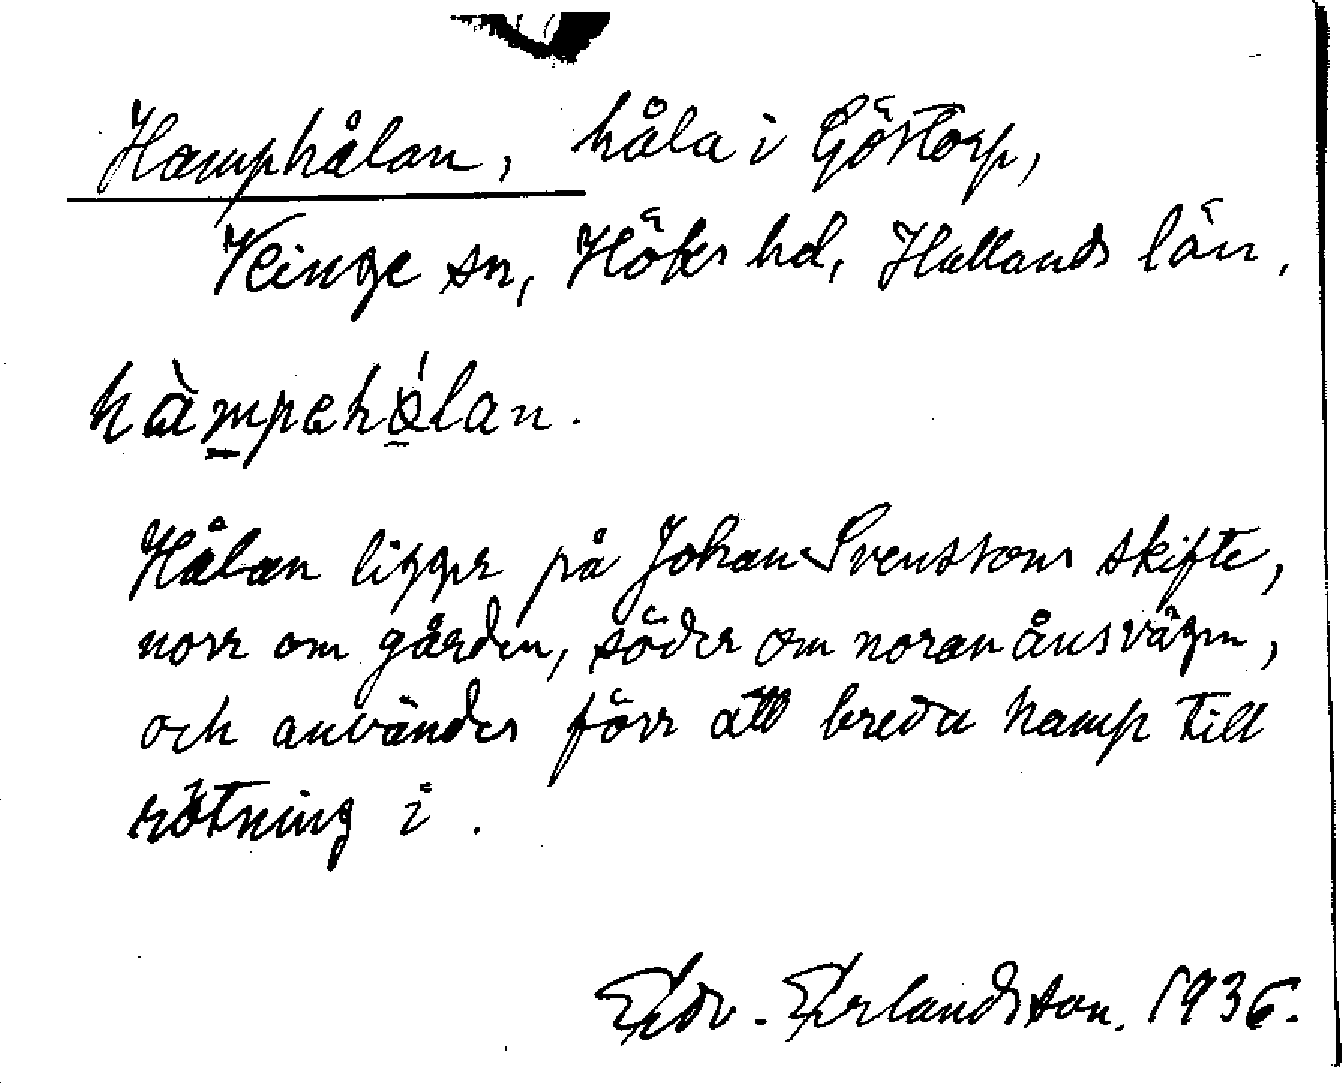 Hamphålan, håla i Göstorp,
Veinge sn, Höks hd, Hallands län.
hàmpehålan.
Hålan ligger på Johan Svenssons skifte,
norr om gården, söder om noranånsvägen,
och användes förr att breda hamp till
rötning i.
Edv. Erlandsson. 1936.